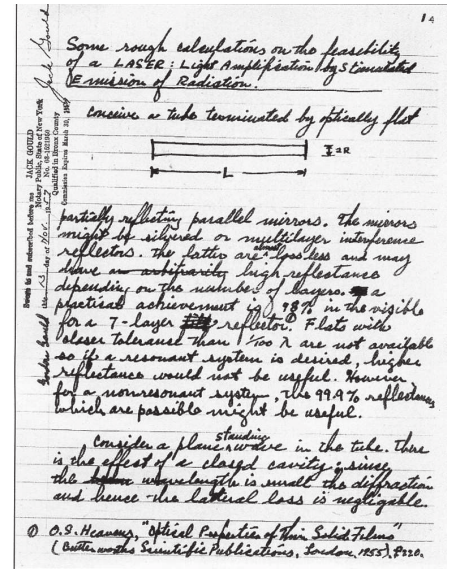 1
Some rough calculations on the feasibility
of a LASER: Light Amplification by Stimulated
Emission of Radiation.
conceive a tube terminated by optically flat
2R
L
partially reflecting parallel mirrors. The mirrors
might be silvered or multilayer interference
reflectors. The latter are almost lossless and may
have high reflectance
depending on the number of layers. a
practical achievement is 98% in the visible
for a 7-layer reflector.① Flats with
closer tolerance than 1/100 λ are not available
so if a resonant system is desired, higher
reflectance would not be useful. However
for a nonresonant system, the 99.9% reflectances
which are possible might be useful.
Consider a plane standing wave in the tube. There
is the effect of a closed cavity; since
the wavelength is small the diffraction
and hence the lateral loss is negligable.
① O.S. Heavens, "Optical Properties of Thin Solid Films"
(Butterworths Scientific Publications, London, 1955), p220.
Sworn to and subscribed before me
this 13 day of Nov. 1957
JACK GOULD
Notary Public, State of New York
Qualified in Bronx County
Commission Expires March 30,
Jack Gould
Gordon Gould